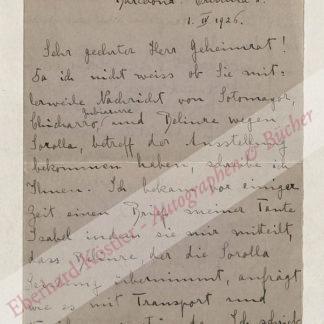 Barcelona.
1. IV 1926.
Sehr geehrter Herr Geheimrat!
Da ich nicht weiss ob Sie mit-
lerweile Nachricht von Sotomayor,
Chicharro, und Benlliure wegen
Sorolla, betreff der Ausstellung
bekommen haben, schreibe ich
Ihnen. Ich bekam vor einiger
Zeit einen Brief meiner Tante
Isabel indem sie mir mitteilt,
dass Benlliure der die Sorolla
übernimmt, anfrägt
wie es mit Transport und
Ich schrieb
Eberhard Köstler - Autographen & Bücher